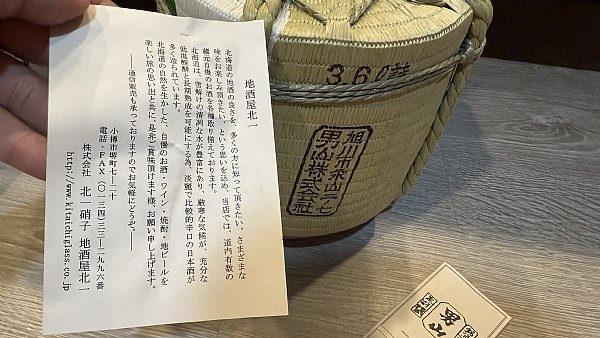 地酒屋北一
北海道の地酒の良さを、多くの方に知って頂きたい、さまざまな
味をお楽しみ頂きたい、という思いを込め、当店では、道内有数の
蔵元自慢のお酒を各種取り揃えております。
北海道は、雪解けの清冽な水が豊富にあり、厳寒な気候が、充分な
低温醗酵と長期熟成を可能にする為、淡麗で比較的辛口の日本酒が
多く造られています。
北海道の自然を生かした、自慢のお酒・ワイン・焼酎・地ビールを
楽しい旅の思い出と共に、是非ご賞味頂けます様、お願い申し上げます。
――通信販売も承っておりますのでお気軽にどうぞ。――
小樽市堺町七―二十
電話・FAX(〇一三四)三三―一九九六番
株式会社 北一硝子 地酒屋北一
http://www.kitaichiglass.co.jp
360詰
旭川市永山二ノ七
男山株式会社
男山